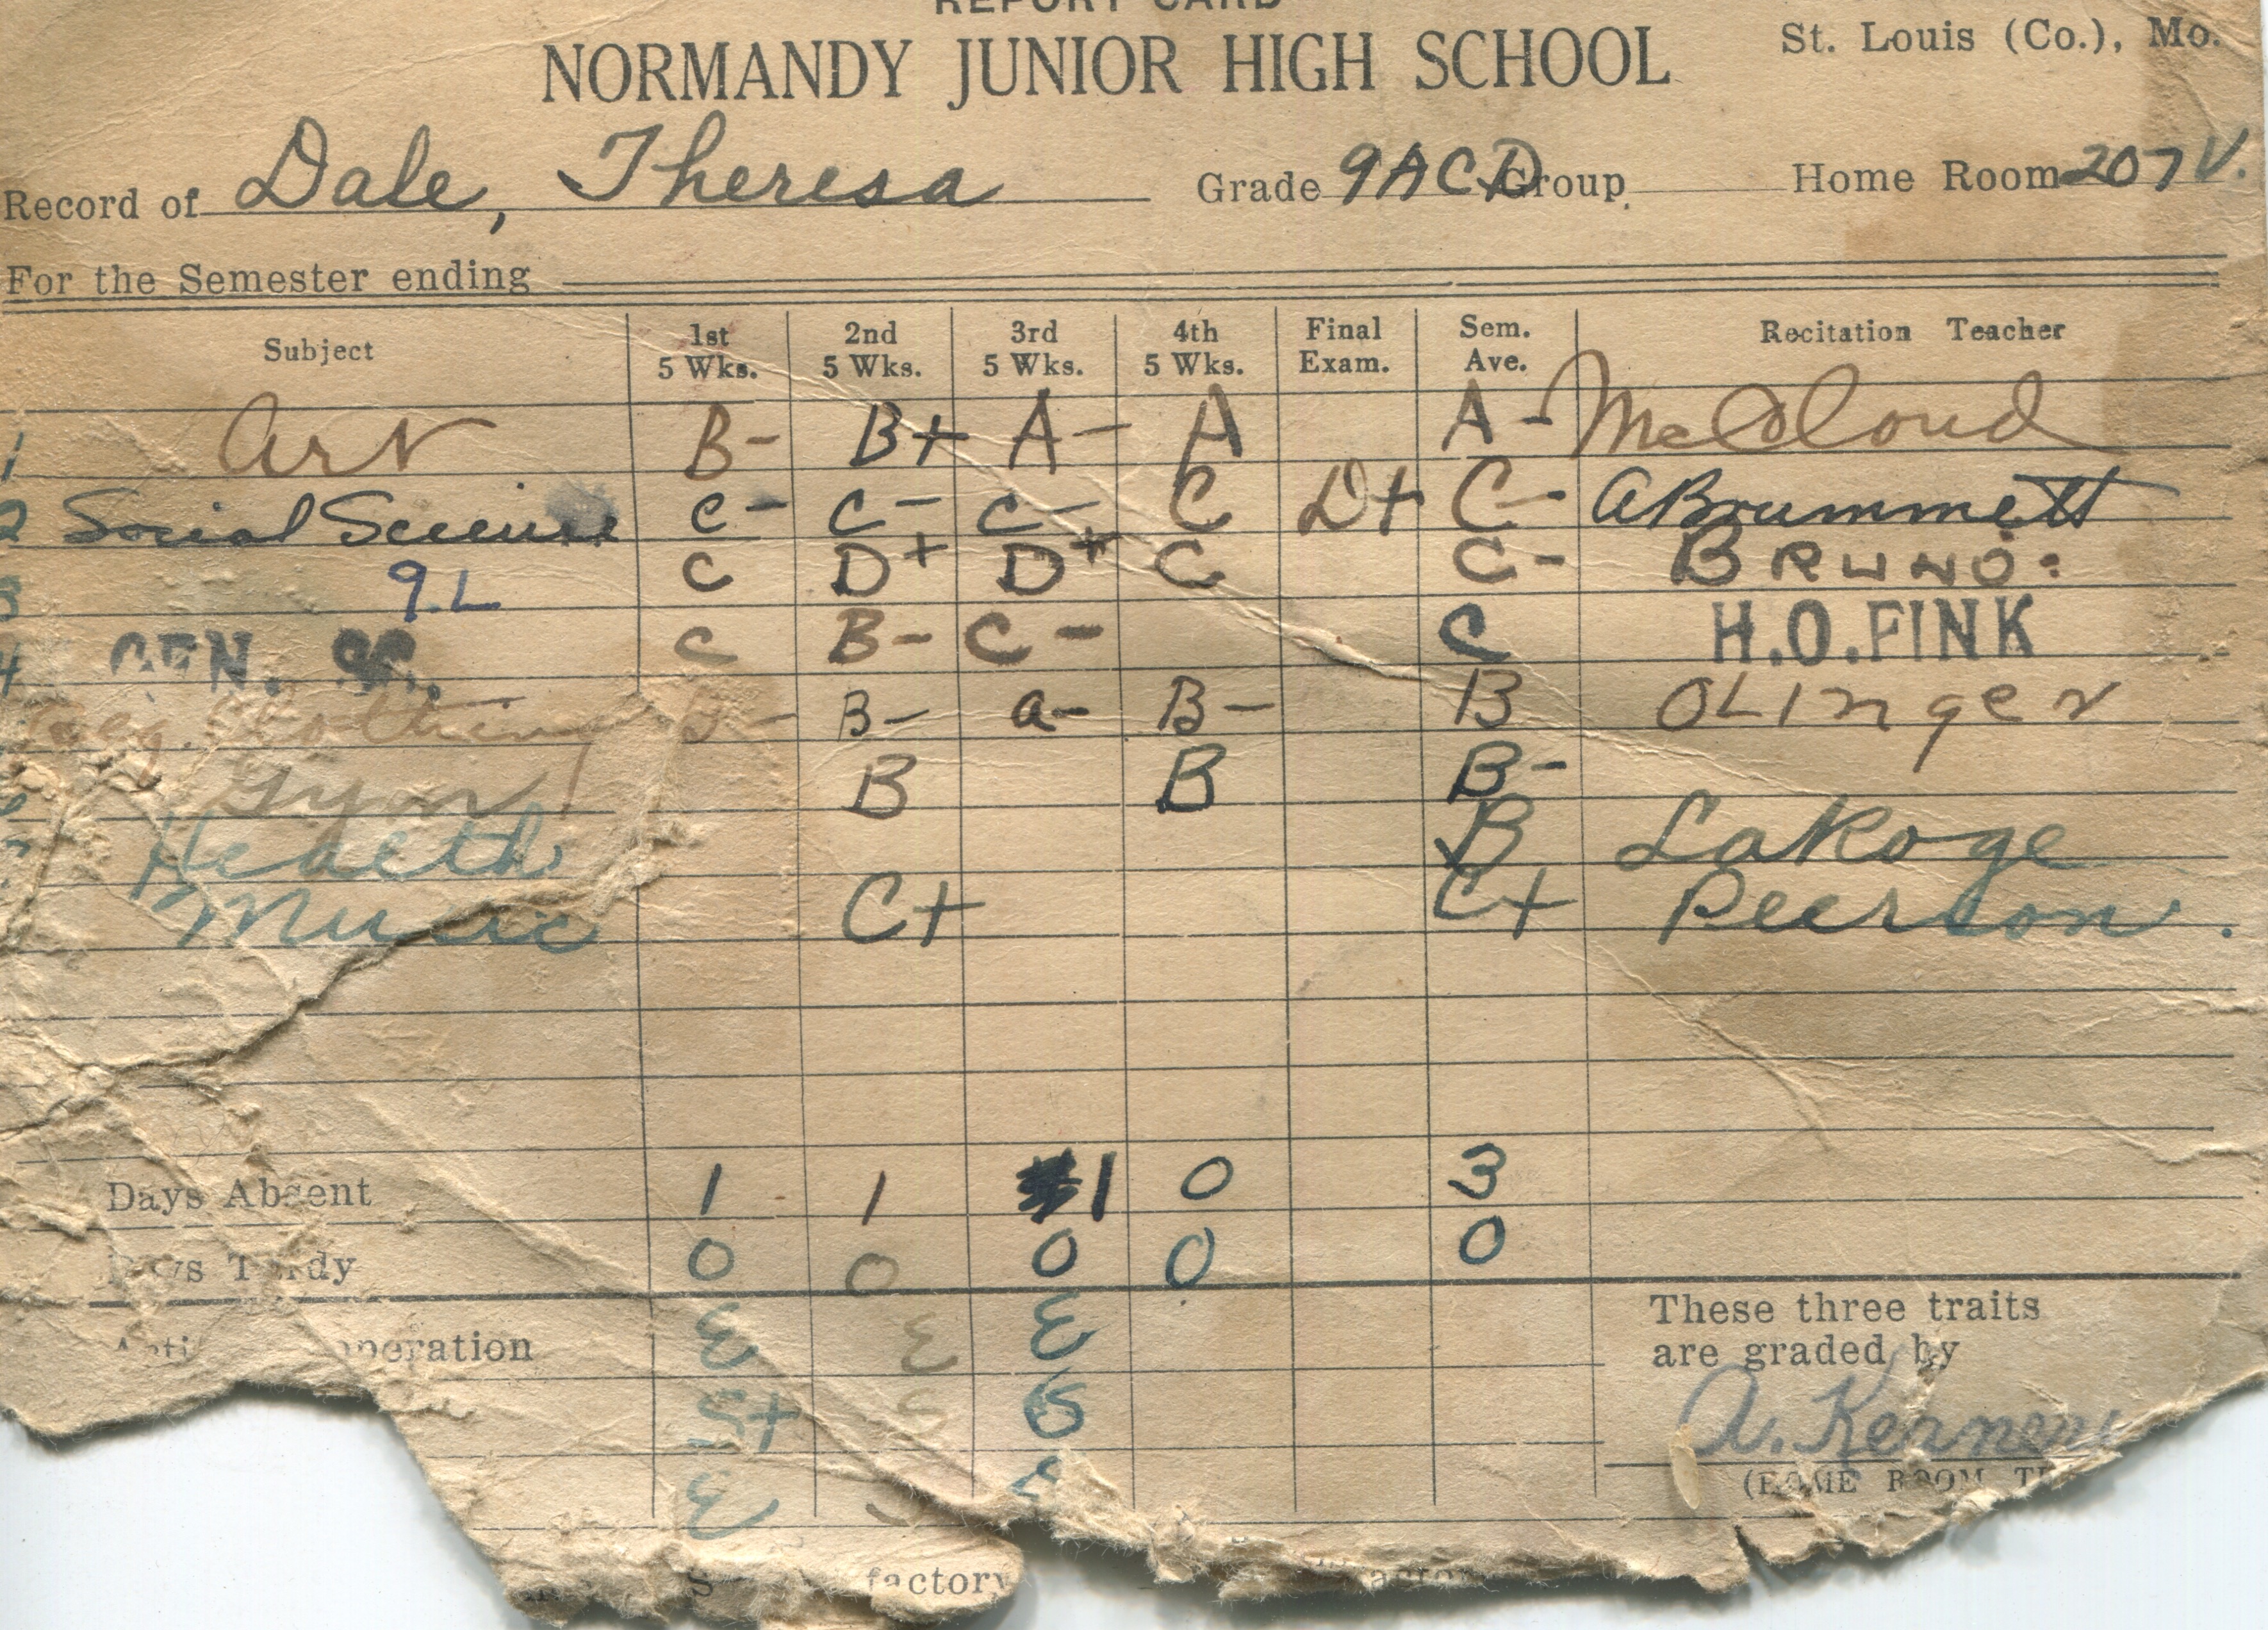 REPORT CARD
St. Louis (Co.), Mo.
NORMANDY JUNIOR HIGH SCHOOL
Record of Dale, Theresa Grade 9A CD Group Home Room 207 V.
For the Semester ending
Subject 1st 5 Wks. 2nd 5 Wks. 3rd 5 Wks. 4th 5 Wks. Final Exam. Sem. Ave. Recitation Teacher
1 Art B- B+ A- A A- McCloud
2 Social Science C- C- C- C D+ C- A Brummett
3 9.L C D+ D+ C C- BRUNO.
4 GEN. SC. C B- C- C H.O.FINK
Clothing B- a- B- B OLinger
Gym B B B-
Health B LaRoge
Music C+ C+ Peerson.
Days Absent 1 1 1 0 3
Days Tardy 0 0 0 0 0
E E E These three traits
are graded by
S+ S S A.
E (HOME ROOM
factory